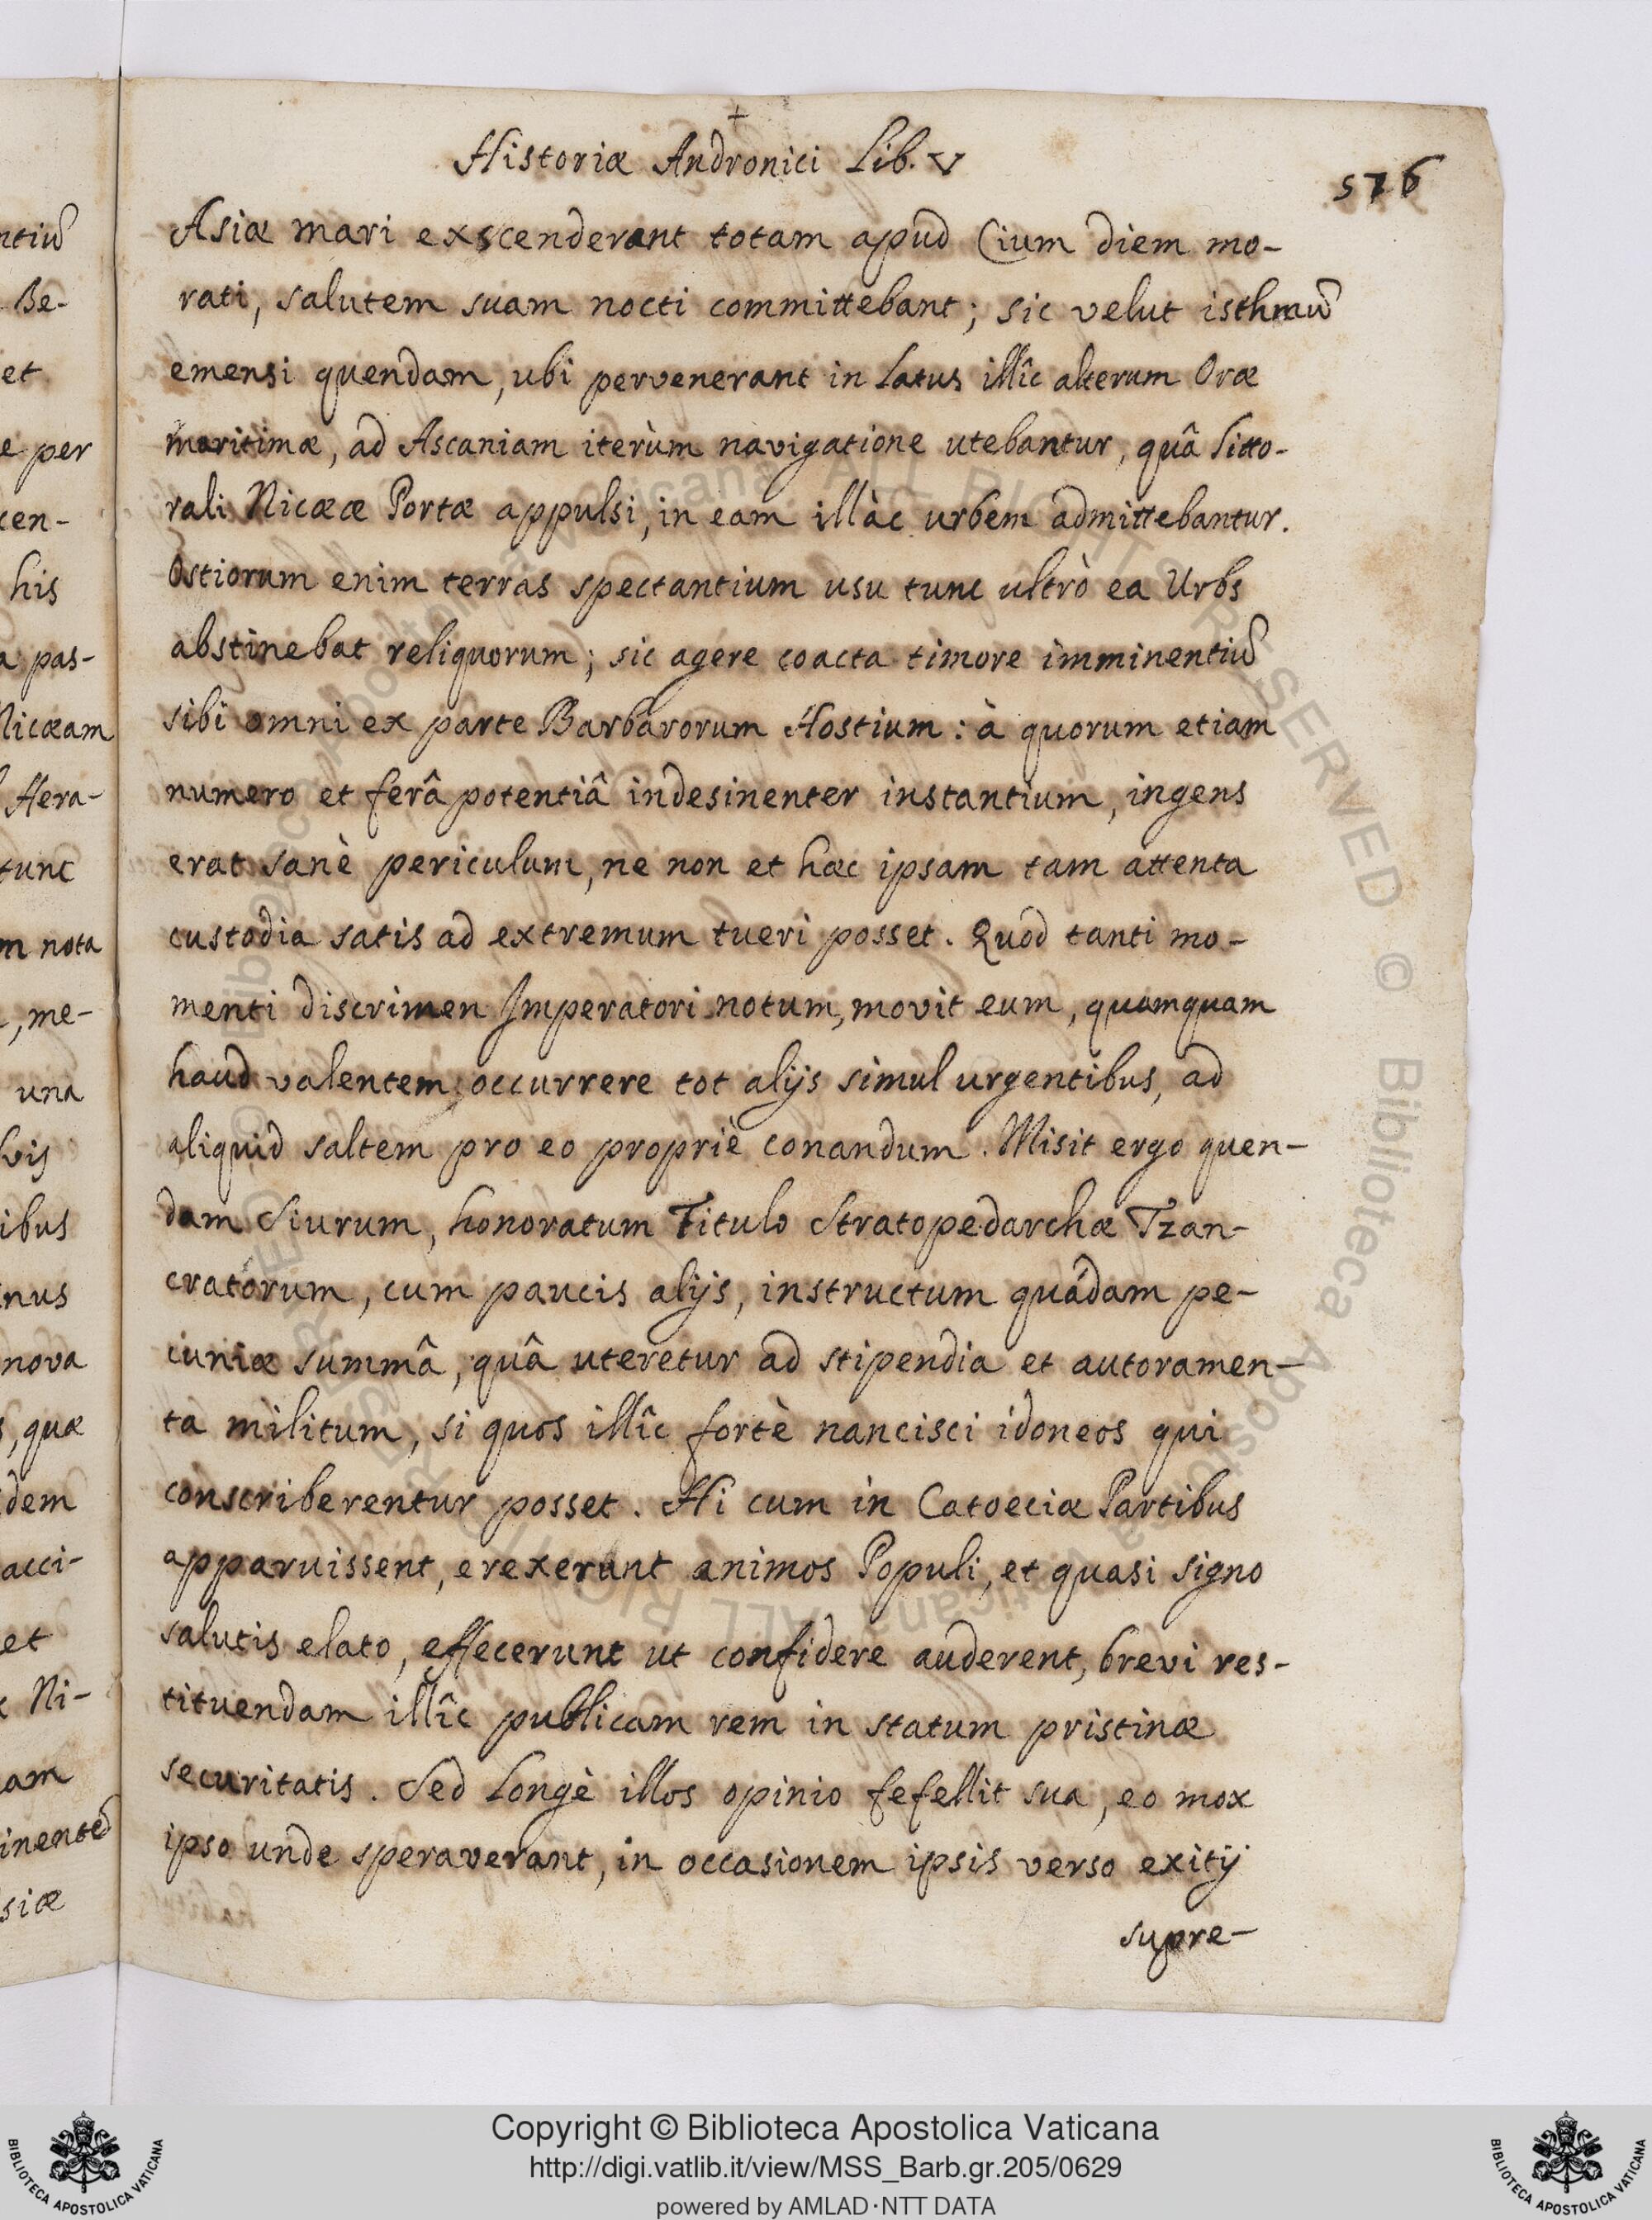 Historiæ Andronici Lib. V
576
Asiæ mari exscenderant totam apud Cium diem mo-
rati, salutem suam nocti committebant; sic velut isthmũ
emensi quendam, ubi pervenerant in Latus illîc alterum Oræ
maritimæ, ad Ascaniam iterùm navigatione utebantur, quâ litto-
rali Nicææ Portæ appulsi, in eam illàc urbem admittebantur.
Ostiorum enim terras spectantium usu tunc ultrò ea Urbs
abstinebat reliquorum; sic agere coacta timore imminentiũ
sibi omni ex parte Barbarorum Hostium: à quorum etiam
numero et ferâ potentiâ indesinenter instantium, ingens
erat sanè periculum, ne non et hæc ipsam tam attenta
custodia satis ad extremum tueri posset. Quod tanti mo-
menti discrimen Imperatori notum, movit eum, quamquam
haud valentem occurrere tot alijs simul urgentibus, ad
aliquid saltem pro eo propriè conandum. Misit ergo quen-
dam Siurum, honoratum Titulo Stratopedarchæ Tzan-
cratorum, cum paucis alijs, instructum quâdam pe-
cuniæ summâ, quâ uteretur ad stipendia et autoramen-
ta militum, si quos illîc fortè nancisci idoneos qui
conscriberentur posset. Hi cum in Catoeciæ Partibus
apparuissent, erexerunt animos Populi, et quasi signo
salutis elato, effecerunt ut confidere auderent, brevi res-
tituendam illîc publicam rem in statum pristinæ
securitatis. Sed Longè illos opinio fefellit sua, eo mox
ipso unde speraverant, in occasionem ipsis verso exitij
supre-
ntiũ
Be-
et
e per
cen-
his
a pas-
Nicæam
Hera-
tunc
m nota
, me-
una
ibus
nus
nova
, quæ
dem
acci-
et
Ni-
am
siæ
Copyright © Biblioteca Apostolica Vaticana
http://digi.vatlib.it/view/MSS_Barb.gr.205/0629
powered by AMLAD·NTT DATA
BIBLIOTECA APOSTOLICA VATICANA
BIBLIOTECA APOSTOLICA VATICANA